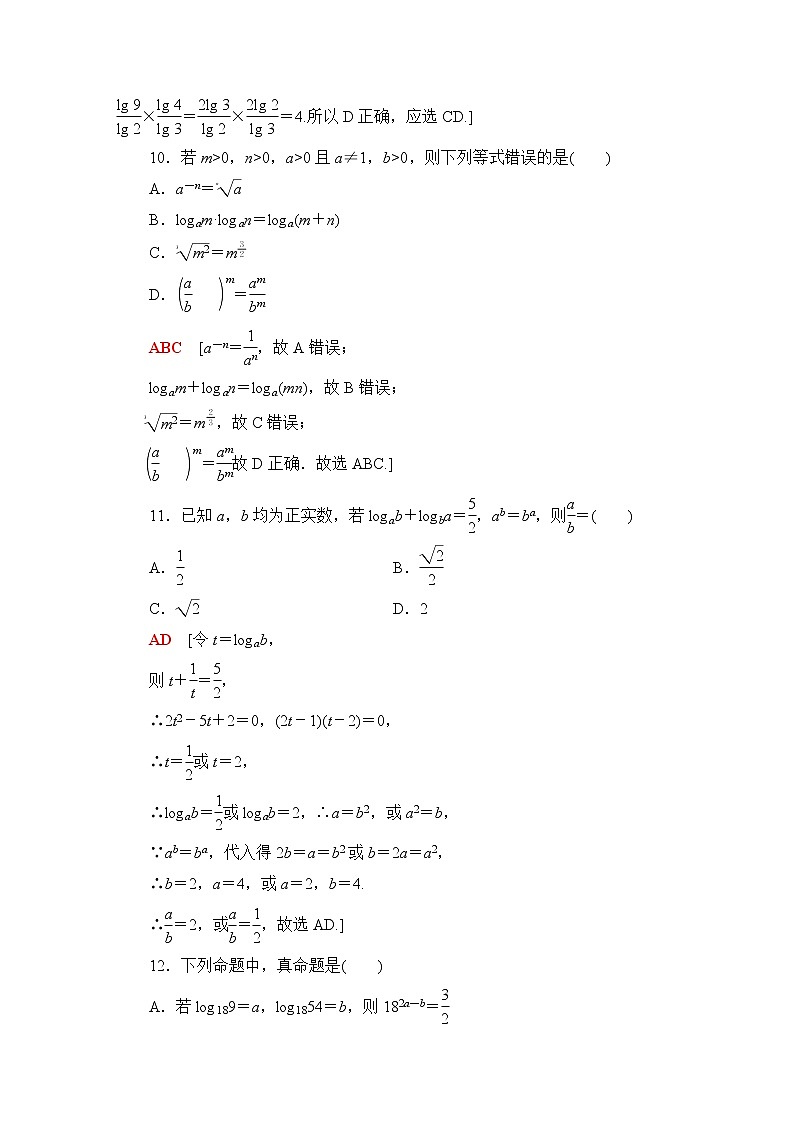 lg 9/lg 2×lg 4/lg 3=2lg 3/lg 2×2lg 2/lg 3=4.所以 D 正确，应选 CD.]
10．若 m>0，n>0，a>0 且 a≠1，b>0，则下列等式错误的是(　　)
A．a⁻ⁿ=√a
B．logₐm·logₐn=logₐ(m+n)
C．√m²=m^(3/2)
D．(a/b)^m=a^m/b^m
ABC　[a⁻ⁿ=1/aⁿ，故 A 错误；
logₐm+logₐn=logₐ(mn)，故 B 错误；
√m²=m^(2/3)，故 C 错误；
(a/b)^m=a^m/b^m故 D 正确．故选 ABC.]
11．已知 a，b 均为正实数，若 logₐb+log_b a=5/2，a^b=b^a，则a/b=(　　)
A．1/2　B．√2/2
C．√2　D．2
AD　[令 t=logₐb，
则 t+1/t=5/2，
∴2t²-5t+2=0，(2t-1)(t-2)=0，
∴t=1/2或 t=2，
∴logₐb=1/2或 logₐb=2，∴a=b²，或 a²=b，
∵a^b=b^a，代入得 2b=a=b²或 b=2a=a²，
∴b=2，a=4，或 a=2，b=4.
∴a/b=2，或a/b=1/2，故选 AD.]
12．下列命题中，真命题是(　　)
A．若 log₁₈9=a，log₁₈54=b，则 18^(2a-b)=3/2